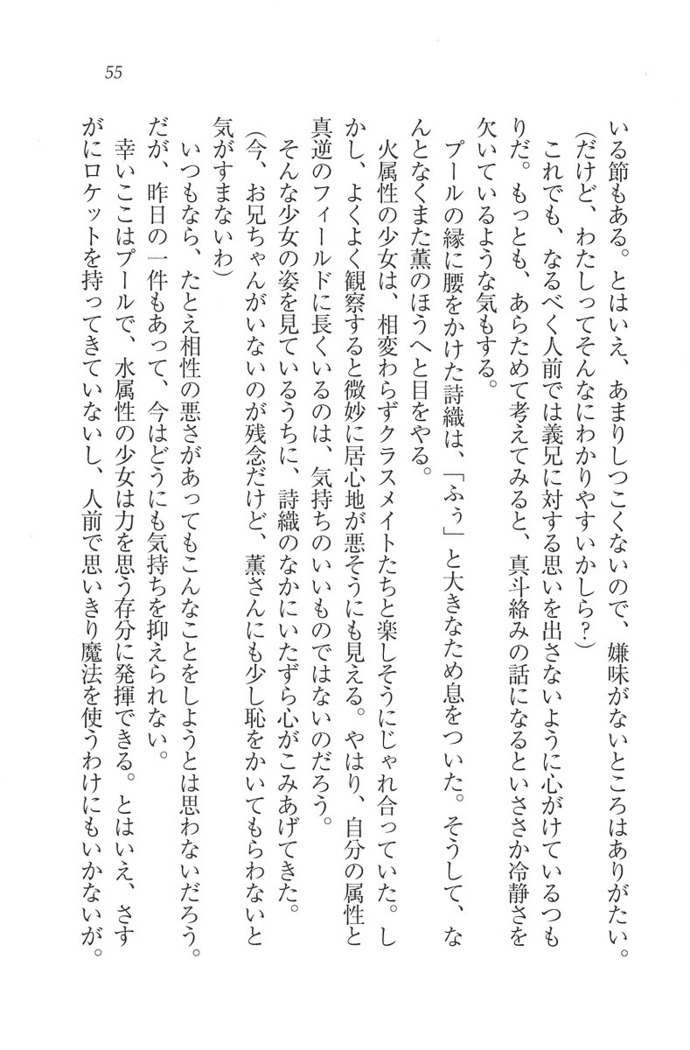 55
いる節もある。とはいえ、あまりしつこくないので、嫌味がないところはありがたい。
(だけど、わたしってそんなにわかりやすいかしら?)
これでも、なるべく人前では義兄に対する思いを出さないように心がけているつも
りだ。もっとも、あらためて考えてみると、真斗絡みの話になるといささか冷静さを
欠いているような気もする。
プールの縁に腰をかけた詩織は、「ふぅ」と大きなため息をついた。そうして、な
んとなくまた薫のほうへと目をやる。
火属性の少女は、相変わらずクラスメイトたちと楽しそうにじゃれ合っていた。し
かし、よくよく観察すると微妙に居心地が悪そうにも見える。やはり、自分の属性と
真逆のフィールドに長くいるのは、気持ちのいいものではないのだろう。
そんな少女の姿を見ているうちに、詩織のなかにいたずら心がこみあげてきた。
(今、お兄ちゃんがいないのが残念だけど、薫さんにも少し恥をかいてもらわないと
気がすまないわ)
いつもなら、たとえ相性の悪さがあってもこんなことをしようとは思わないだろう。
だが、昨日の一件もあって、今はどうにも気持ちを抑えられない。
幸いここはプールで、水属性の少女は力を思う存分に発揮できる。とはいえ、さす
がにロケットを持ってきていないし、人前で思いきり魔法を使うわけにもいかないが。